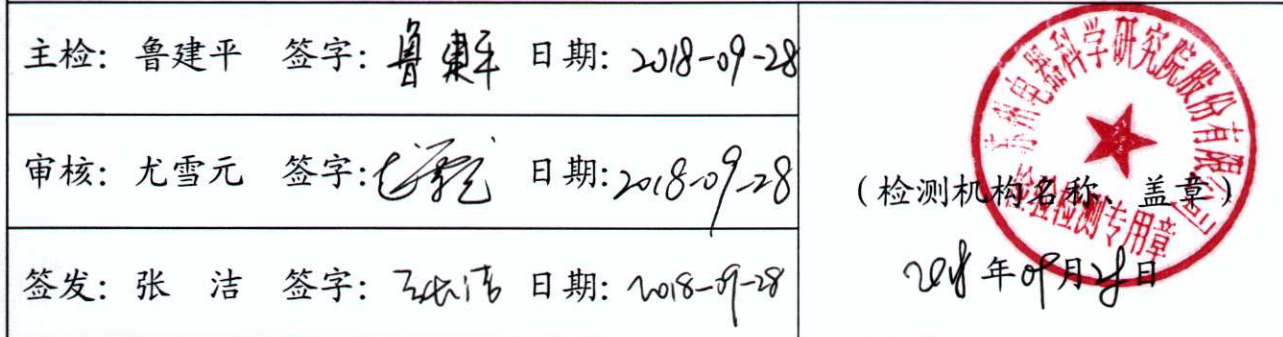 主检: 鲁建平 签字: 鲁建平 日期: 2018-09-28
审核: 尤雪元 签字: 尤雪元 日期: 2018-09-28
签发: 张 洁 签字: 张洁 日期: 2018-09-28
苏州电器科学研究院股份有限公司
(检测机构名称、盖章)
检验检测专用章
2018年09月28日